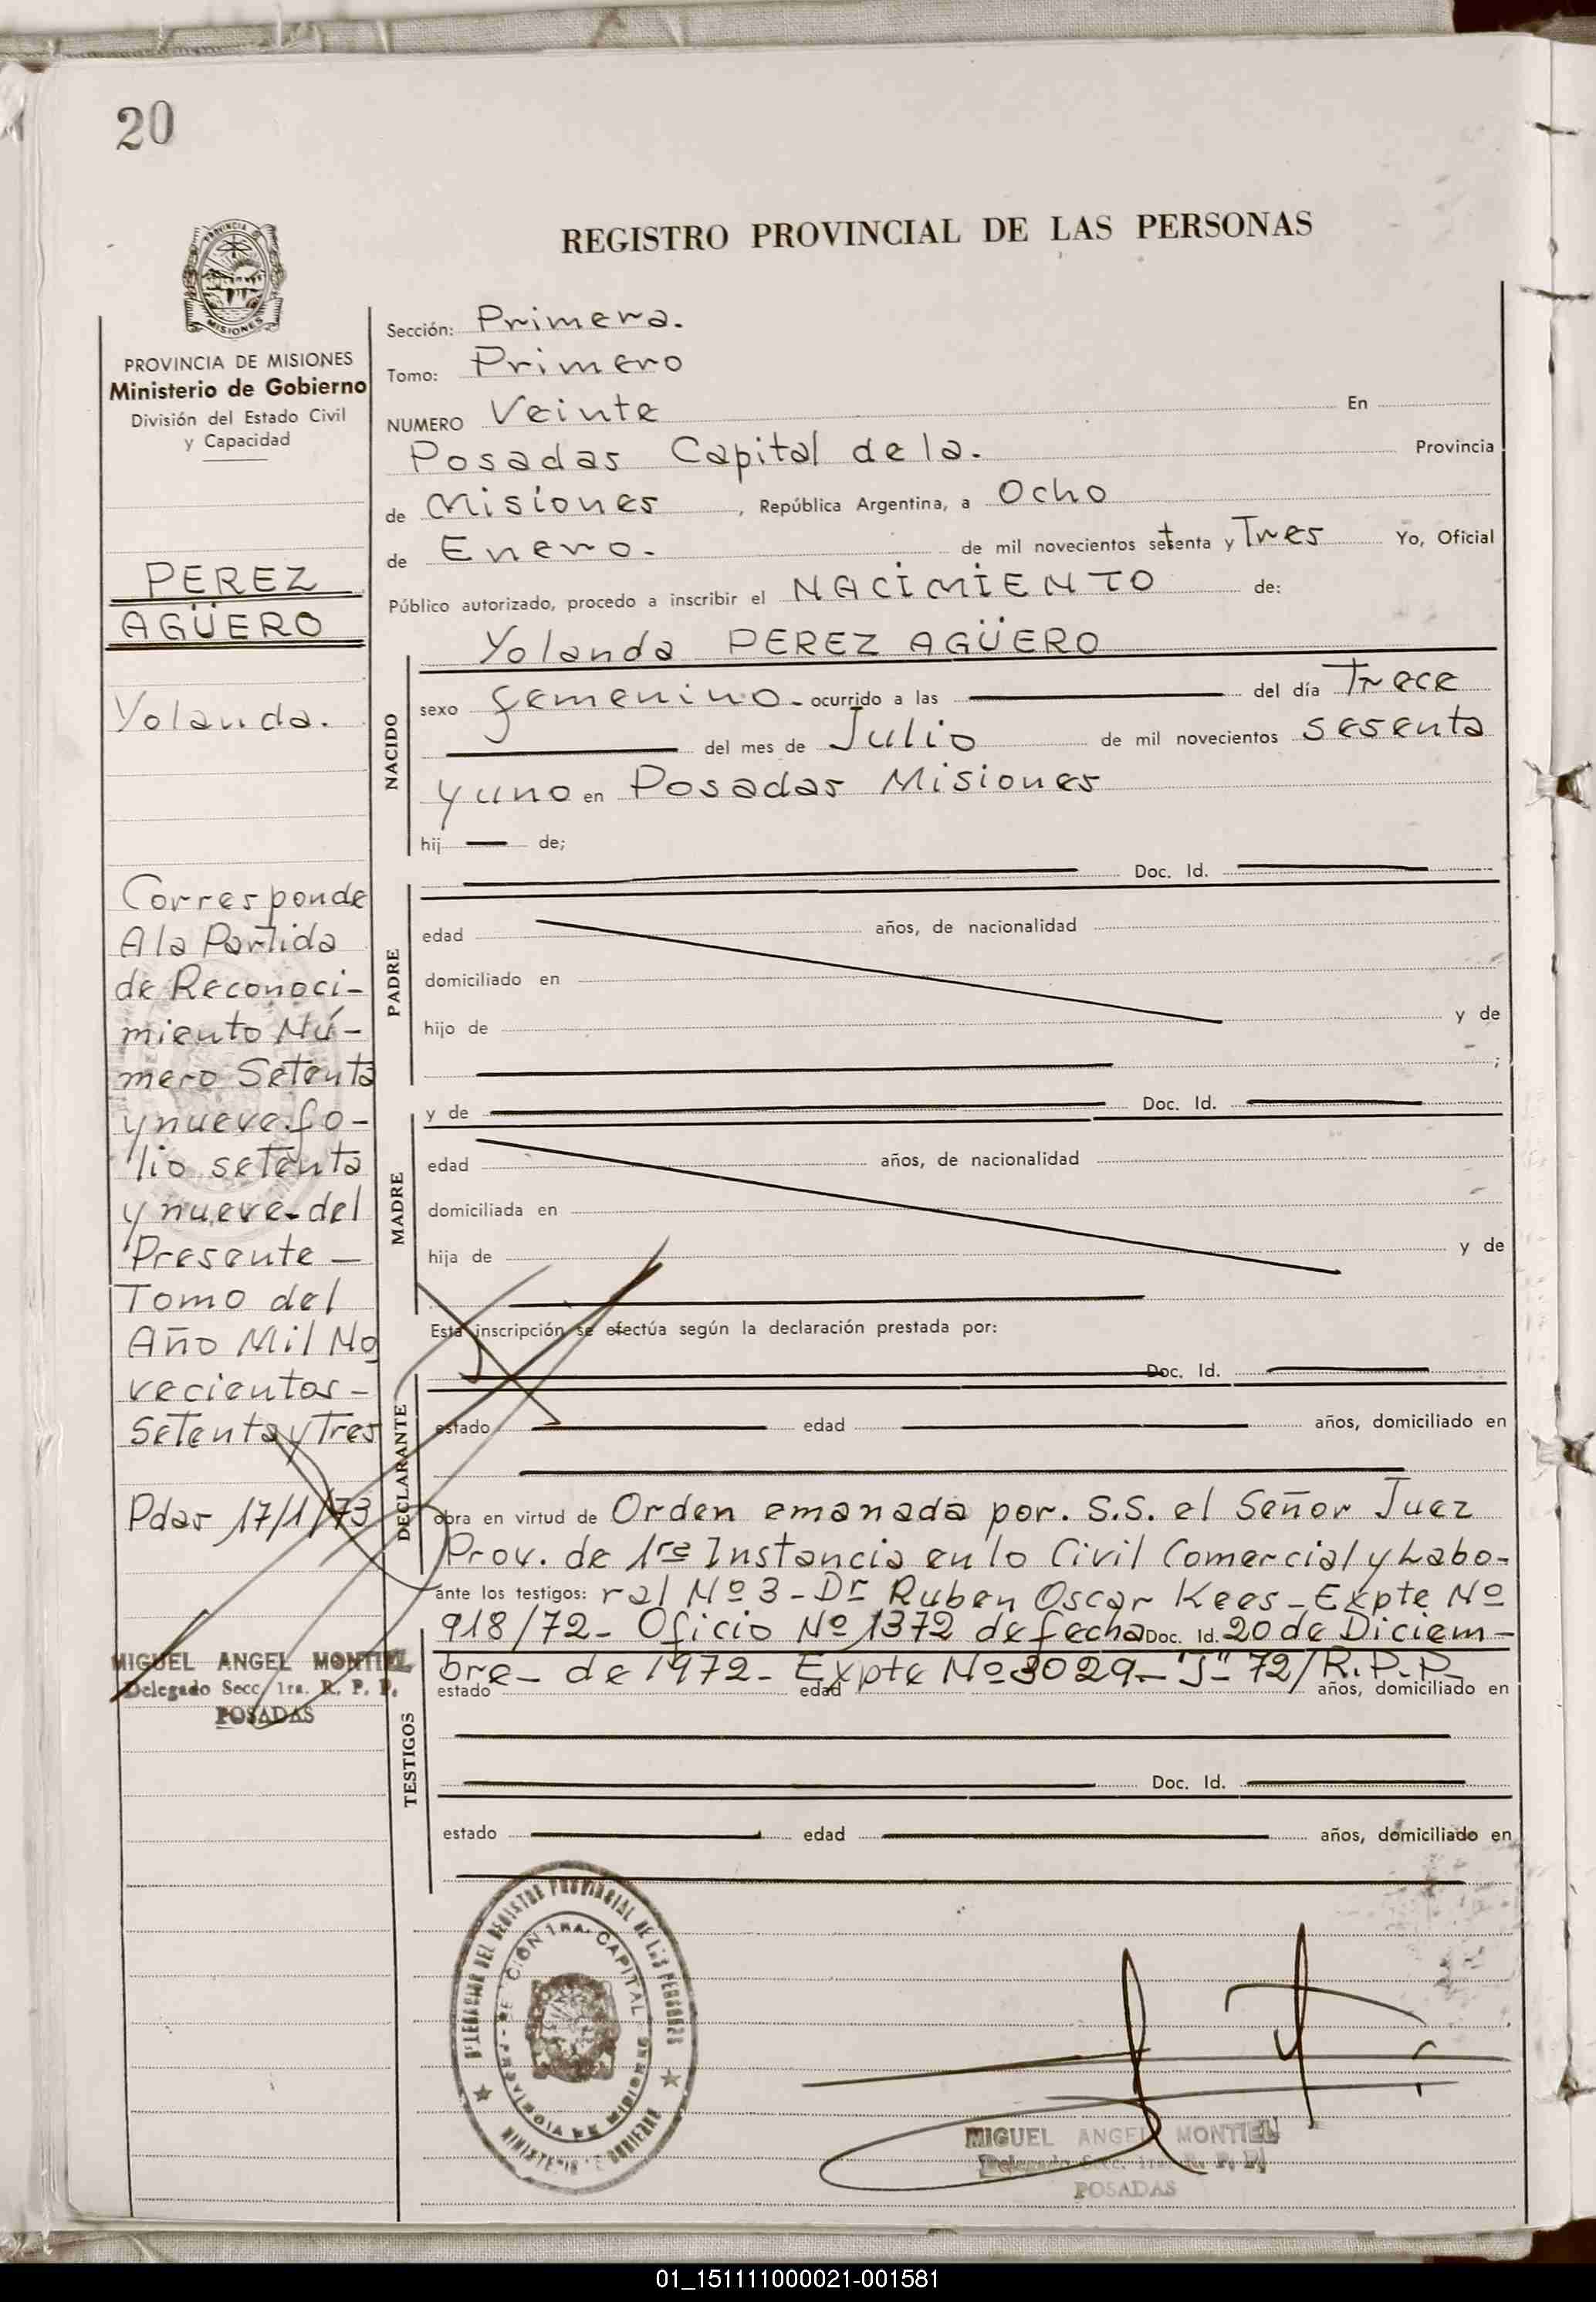 20
REGISTRO PROVINCIAL DE LAS PERSONAS
PROVINCIA DE MISIONES
Ministerio de Gobierno
División del Estado Civil
y Capacidad
PEREZ
AGÜERO
Yolanda.
Corresponde
A la Partida
de Reconoci-
miento Nú-
mero Setenta
y nueve. fo-
lio setenta
y nueve-del
Presente-
Tomo del
Año Mil No
vecientos-
Setenta y Tres
Pdas 17/1/73
MIGUEL ANGEL MONTIEL
Delegado Secc. 1ra. R. P. P.
POSADAS
Sección: Primera.
Tomo: Primero
NUMERO Veinte En
Posadas Capital de la. Provincia
de Misiones, República Argentina, a Ocho
de Enero. de mil novecientos setenta y Tres Yo, Oficial
Público autorizado, procedo a inscribir el NACIMIENTO de:
Yolanda PEREZ AGÜERO
NACIDO
sexo femenino. ocurrido a las del día Trece
del mes de Julio de mil novecientos sesenta
y uno en Posadas Misiones
hij de;
Doc. Id.
PADRE
edad años, de nacionalidad
domiciliado en
hijo de y de
;
y de Doc. Id.
MADRE
edad años, de nacionalidad
domiciliada en
hija de y de
Esta inscripción se efectúa según la declaración prestada por:
Doc. Id.
DECLARANTE
estado edad años, domiciliado en
obra en virtud de Orden emanada por. S.S. el Señor Juez
Prov. de 1ra Instancia en lo Civil Comercial y Labo-
ante los testigos: ral Nº 3 - Dr Ruben Oscar Kees - Expte Nº
918/72- Oficio Nº 1372 de fecha Doc. Id. 20 de Diciem-
bre- de 1972- Expte Nº 3029-"J"-72/R.P.P.
estado edad años, domiciliado en
TESTIGOS
Doc. Id.
estado edad años, domiciliado en
DELEGACION DEL REGISTRO PROVINCIAL DE LAS PERSONAS
SECCION 1RA. CAPITAL
PROVINCIA DE MISIONES
MINISTERIO DE GOBIERNO
MIGUEL ANGEL MONTIEL
Delegado Secc. 1ra. R. P. P.
POSADAS
01_151111000021-001581